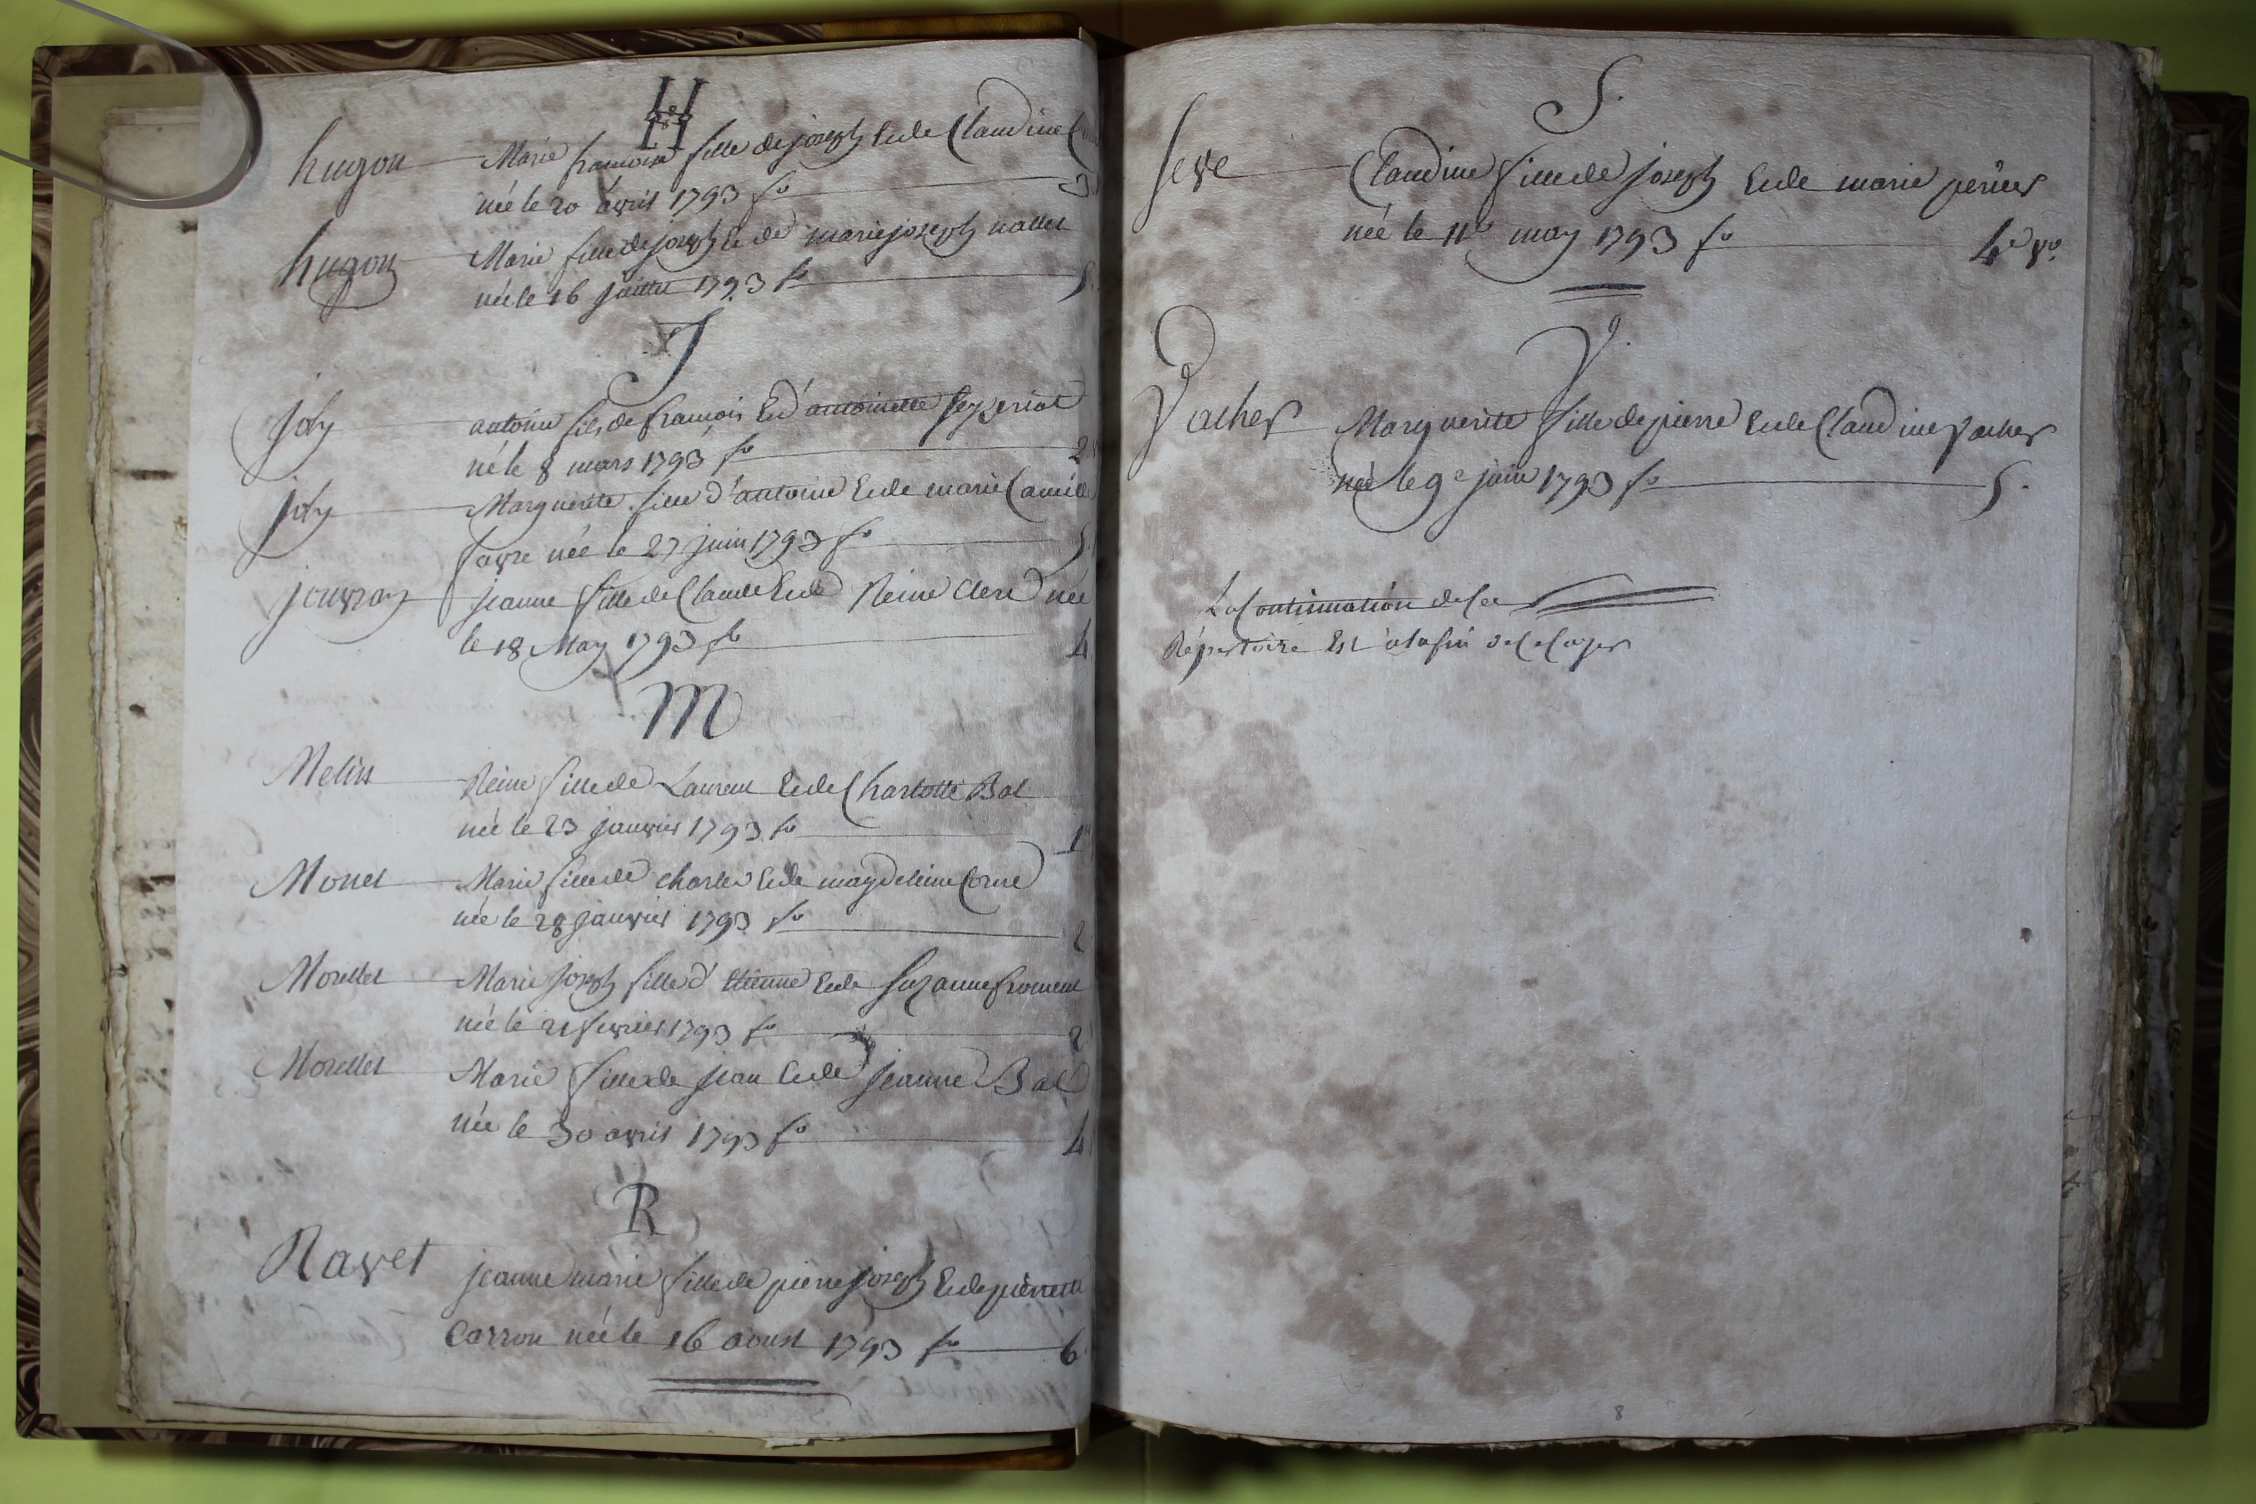 H
hugon Marie francoise fille de joseph Et de Claudine
née le 20 avril 1793 fo 3
hugon Marie fille de joseph et de marie joseph nallet
née le 16 juillet 1793 fo 5.
J
joly antoine fils de francois Et d'antoinette
né le 8 mars 1793 fo 2
joly Marguerite fille d'antoine Et de marie Camille
favre née le 27 juin 1793 fo 5
jouvray jeanne fille de Claude Et de Reine Clerc née
le 18 May 1793 fo 4
M
Melin Reine fille de Laurent Et de Charlotte Bal
née le 23 janvier 1793 fo 1
Monet Marie fille de charles Et de magdeleine
née le 28 janvier 1793 fo 2
Morellet Marie joseph fille d'Etienne Et de Suzanne froment
née le 21 fevrier 1793 fo 2
Morellet Marie fille de jean Et de jeanne Bal
née le 30 avril 1793 fo 4
R
Ravet jeanne marie fille de pierre joseph Et de pierrette
Carron née le 16 aoust 1793 fo 6
S.
Seve Claudine fille de joseph Et de marie perier
née le 11e may 1793 fo 4e vo.
V.
Vacher Marguerite fille de pierre Et de Claudine Vacher
née le 9e juin 1793 fo 5.
La Continuation de Ce
Répertoire Est à la fin de Ce Cayer
8